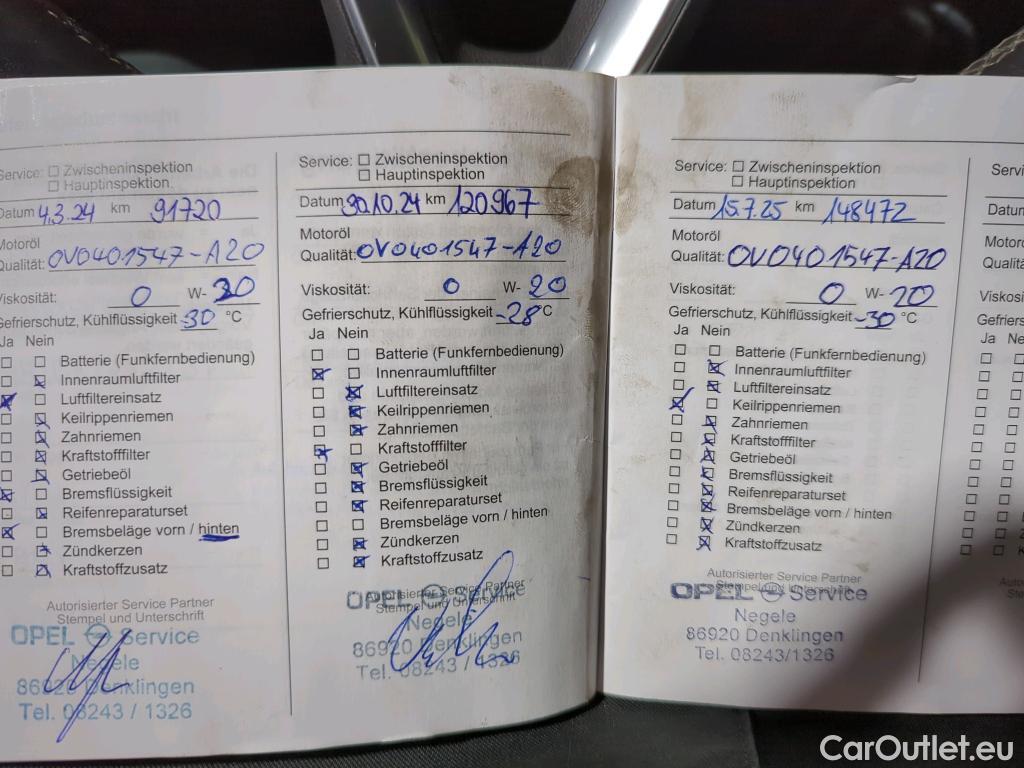 Service: ☐ Zwischeninspektion
☐ Hauptinspektion
Datum 4.3.24 km 91720
Motoröl
Qualität: OV0401547-A20
Viskosität: 0 W-20
Gefrierschutz, Kühlflüssigkeit -30 °C
Ja Nein
Batterie (Funkfernbedienung)
Innenraumluftfilter
Luftfiltereinsatz
Keilrippenriemen
Zahnriemen
Kraftstofffilter
Getriebeöl
Bremsflüssigkeit
Reifenreparaturset
Bremsbeläge vorn / hinten
Zündkerzen
Kraftstoffzusatz
Autorisierter Service Partner
Stempel und Unterschrift
OPEL Service
Negele
86920 Denklingen
Tel. 08243 / 1326
Service: ☐ Zwischeninspektion
☐ Hauptinspektion
Datum 30.10.24 km 120967
Motoröl
Qualität: OV0401547-A20
Viskosität: 0 W-20
Gefrierschutz, Kühlflüssigkeit -28 °C
Ja Nein
Batterie (Funkfernbedienung)
Innenraumluftfilter
Luftfiltereinsatz
Keilrippenriemen
Zahnriemen
Kraftstofffilter
Getriebeöl
Bremsflüssigkeit
Reifenreparaturset
Bremsbeläge vorn / hinten
Zündkerzen
Kraftstoffzusatz
Autorisierter Service Partner
Stempel und Unterschrift
OPEL Service
Negele
86920 Denklingen
Tel. 08243 / 1326
Service: ☐ Zwischeninspektion
☐ Hauptinspektion
Datum 15.7.25 km 148472
Motoröl
Qualität: OV0401547-A20
Viskosität: 0 W-20
Gefrierschutz, Kühlflüssigkeit -30 °C
Ja Nein
Batterie (Funkfernbedienung)
Innenraumluftfilter
Luftfiltereinsatz
Keilrippenriemen
Zahnriemen
Kraftstofffilter
Getriebeöl
Bremsflüssigkeit
Reifenreparaturset
Bremsbeläge vorn / hinten
Zündkerzen
Kraftstoffzusatz
Autorisierter Service Partner
Stempel und Unterschrift
OPEL Service
Negele
86920 Denklingen
Tel. 08243/1326
Ja
CarOutlet.eu